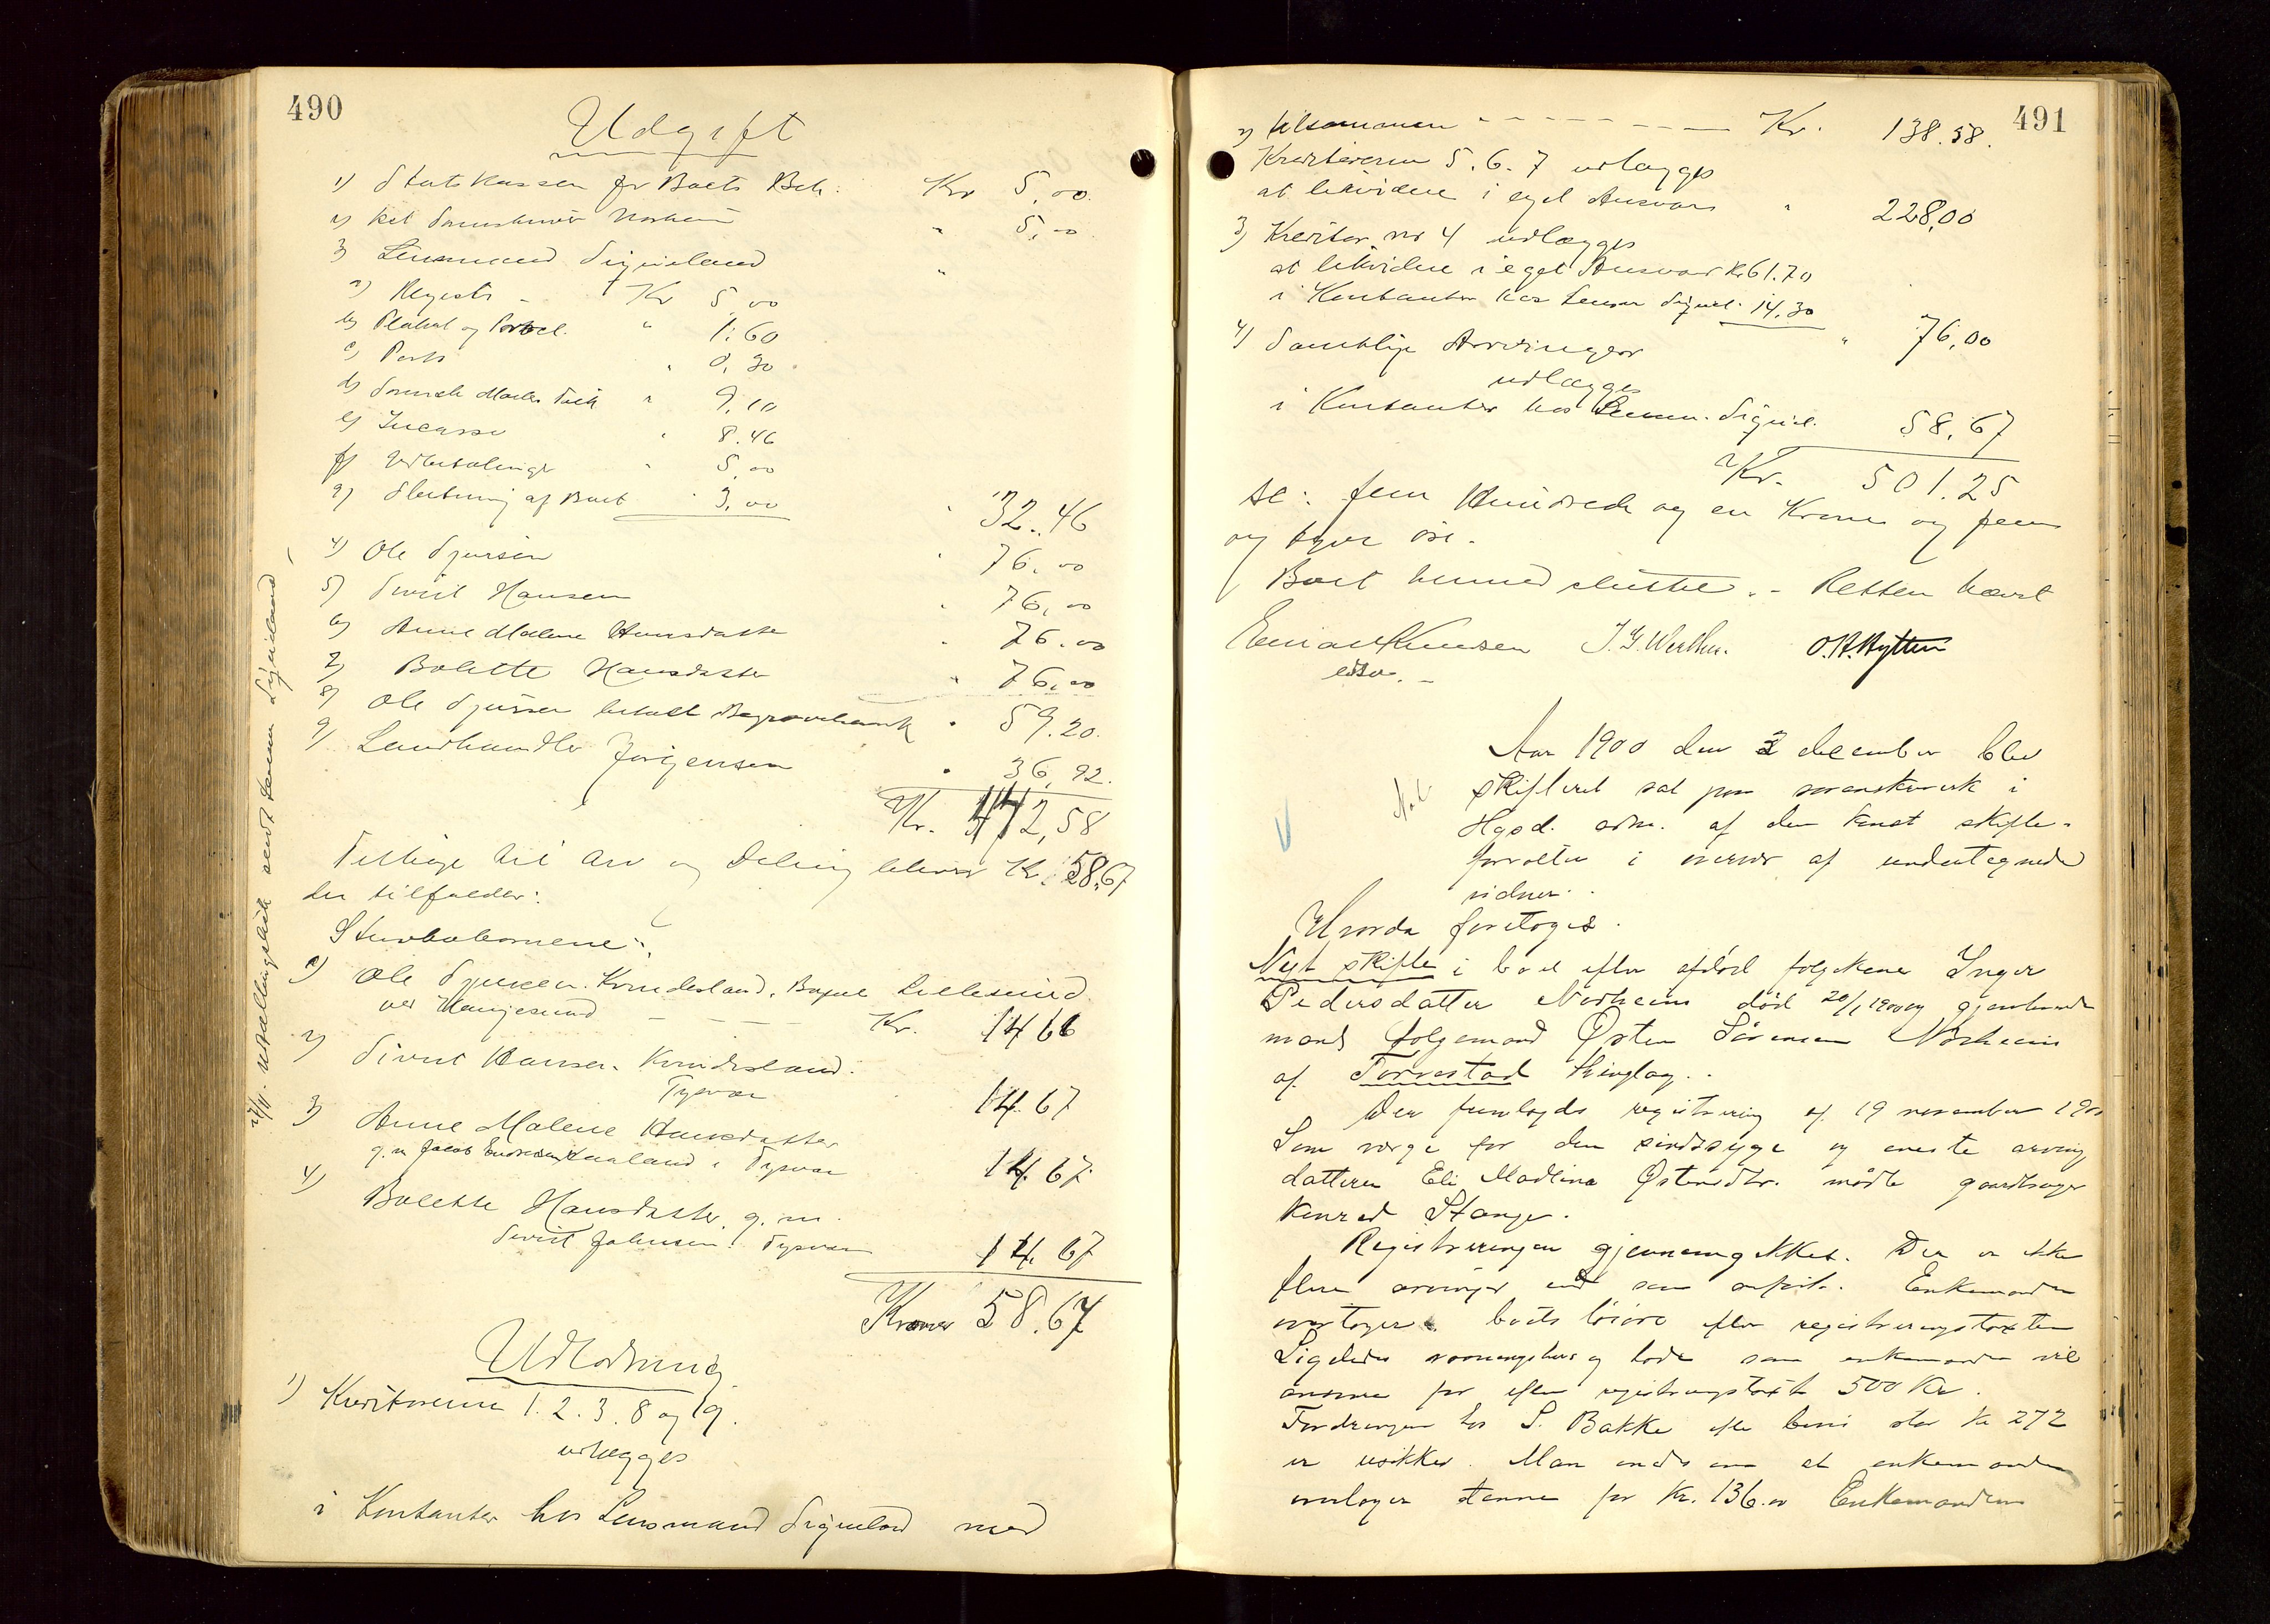 490
Udgift
1) Statskassen for Boets Beh. Kr 5,00.
2) Ret Norheim " 5,00
3) Lensmand Signeland "
a) Registr - Kr 5,00
b) Plakat og " 1,60
c) Porto " 0,30
d) 9,10
e) Incasso " 8.46
f) Udbetalinger " 5,00
g) Slutning af Boet " 3,00
" 32.46
4) Ole Sjursen " 76.00
5) Sivert Hansen " 76,00
6) Anne Malene Hansdatter " 76.00
7) Bolette Hansdatter " 76,00
8) Ole Sjursen betalt " 59.20.
9) Landhandler Jørgensen " 36,92.
Kr. 442,58
Tilbage til Arv og Deling bliver Kr. 58,67
der tilfalder:
Stervbobørnene:
1) Ole Sjursen
ved Haugesund Kr. 14 66
2) Sivert Hansen
Tysvær 14.67
3) Anne Malene Hansdatter
g.m. Jacob i Tysvær 14.67.
4) Bolette Hansdatter, g.m.
Sivert Johnsen. Tysvær 14.67
Kroner 58.67
Udlodning
1) Kreditorerne 1. 2. 3. 8 og 9.
udlægges
i Kontanter hos Lensmand Signeland med
sendt Lensm. Signeland
491
tilsammen - - - - - - - - Kr. 138.58.
2) Kreditorerne 5. 6. 7 udlægges
at likvidere i eget Ansvar " 228,00
3) Kreditor nr 4 udlægges
at likvidere i eget Ansvar Kr 61.70
i Kontanter hos Lensm. Signel. 14.30
" 76,00
4) Samtlige Arvinger
udlægges
i Kontanter hos Lensm. Signel. 58,67
Kr. 501.25
sc: fem Hundrede og en Krone og fem
og tyve øre.
Boet hermed sluttet. - Retten hævet
Knudsen J. G. O. H. Hytten
edsv. -
Aar 1900 den 3 december blev
skifteret sat paa sorenskr.ktr. i
Hgsd. adm. af den const skifte-
forvalter i overvær af undertegnede
vidner.
Not.
Hvorda foretoges.
Nyt skifte i boet efter afdød folgekone Inger
Pedersdatter Norheim død 20/1 1900 og gjenlevende
mand folgemand Østen Sørensen Norheim
af Torvestad thinglag.
Der fremlagdes registrering af 19 november 1900
Som verge for den sindssyge og eneste arving
datteren Eli Madlina Østensdtr. mødte gaardbruger
Konrad Stange.
Registreringen gjennemgikkes. Der er ikke
flere arvinger end som anført. Enkemanden
overtager boets løsøre efter registreringstaxten
Ligeledes vaaningshus og lade som enkemanden vil
for efter registreringstaxt 500 Kr.
Fordringen hos S. Bakke efter bevis stor Kr 272
er usikker. Man enedes om at enkemanden
overtager denne for Kr. 136.00 Enkemanden